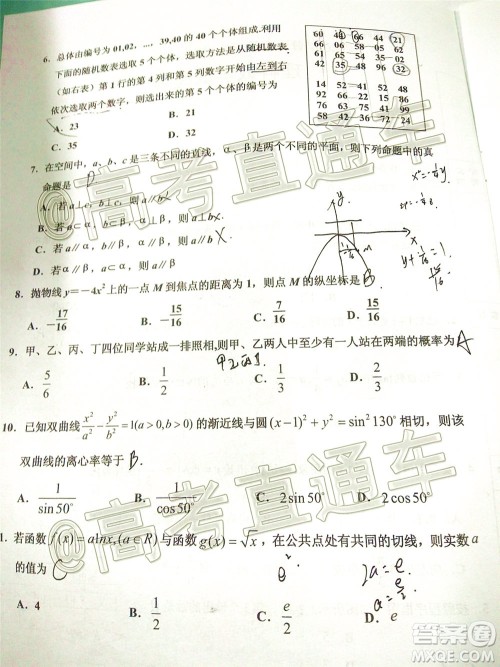 6. 总体由编号为 01,02, …, 39,40 的 40 个个体组成.利用
下面的随机数表选取 5 个个体，选取方法是从随机数表
（如右表）第 1 行的第 4 列和第 5 列数字开始由左到右
依次选取两个数字，则选出来的第 5 个个体的编号为
A. 23 B. 21
C. 35 D. 32
60 44 66 44 21
66 06 58 05 62
42 35 48 96 32
14 52 41 52 48
22 66 22 15 86
26 63 75 41 99
58 42 36 72 24
7. 在空间中，a、b、c 是三条不同的直线，α、β 是两个不同的平面，则下列命题中的真
命题是 D
A. 若 a⊥c，b⊥c，则 a∥b
B. 若 a⊂α，b⊂β，α⊥β，则 a⊥b
C. 若 a∥α，b∥β，α∥β，则 a∥b
D. 若 α∥β，a⊂α，则 a∥β
y
x
M
8. 抛物线 y=－4x² 上的一点 M 到焦点的距离为 1，则点 M 的纵坐标是 B
A. -17/16 B. -15/16 C. 7/16 D. 15/16
9. 甲、乙、丙、丁四位同学站成一排照相,则甲、乙两人中至少有一人站在两端的概率为 A
A. 5/6 B. 1/2 C. 1/3 D. 2/3
10. 已知双曲线 x²/a² - y²/b² = 1(a>0,b>0) 的渐近线与圆 (x-1)²+y²=sin²130° 相切，则该
双曲线的离心率等于 B
A. 1/sin50° B. 1/cos50° C. 2sin50° D. 2cos50°
1. 若函数 f(x)=alnx,(a∈R) 与函数 g(x)=√x，在公共点处有共同的切线，则实数 a
的值为 C
A. 4 B. 1/2 C. e/2 D. e
2a = e
a = e/2
@高考直通车
@高考直通车
答案圈
MXQE.COM